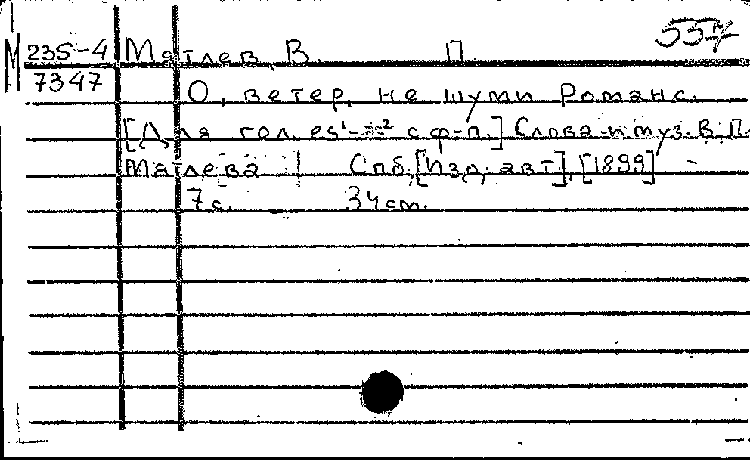 557
М 235-4 Мятлев, В. П.
7347
О, ветер, не шуми Романс.
[Для гол. es¹- ² с ф-п.] Слова и муз. В. П.
Мятлева Спб, [Изд. авт], [1899]
7 с. 34 см.